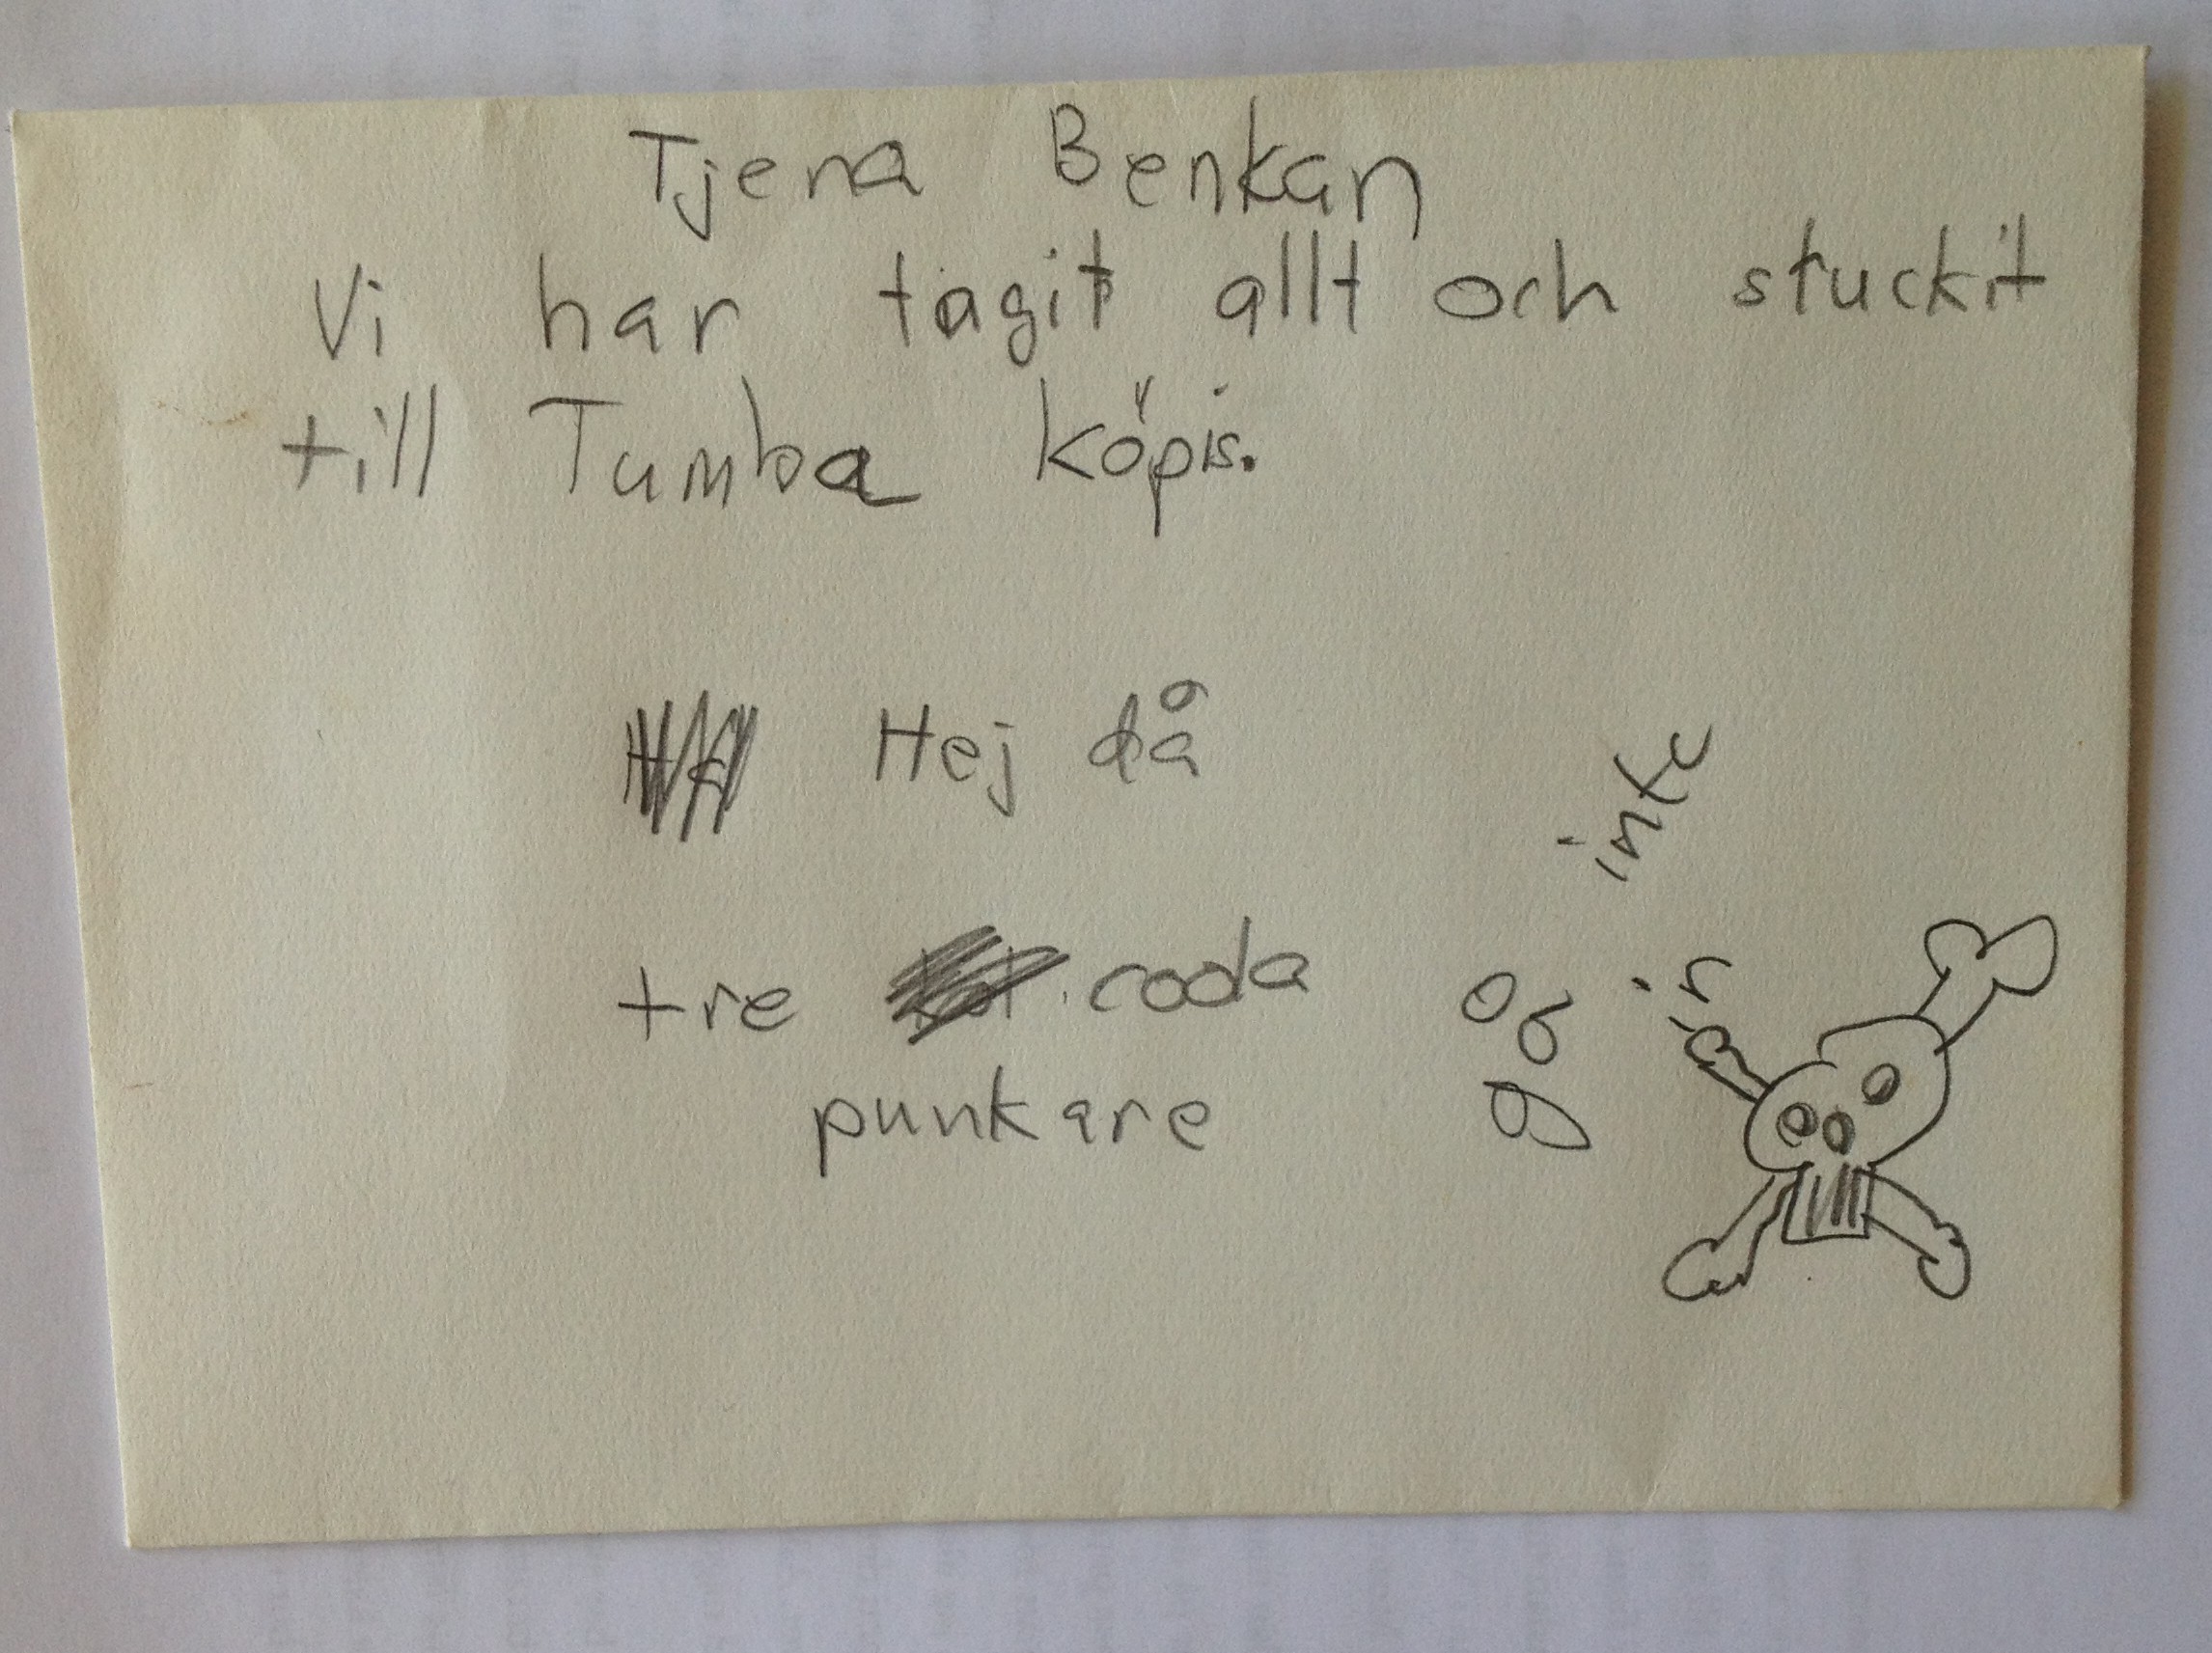 Tjena Benkan
Vi har tagit allt och stuckit
till Tumba köpis.
Hej då
tre coola
punkare
inte